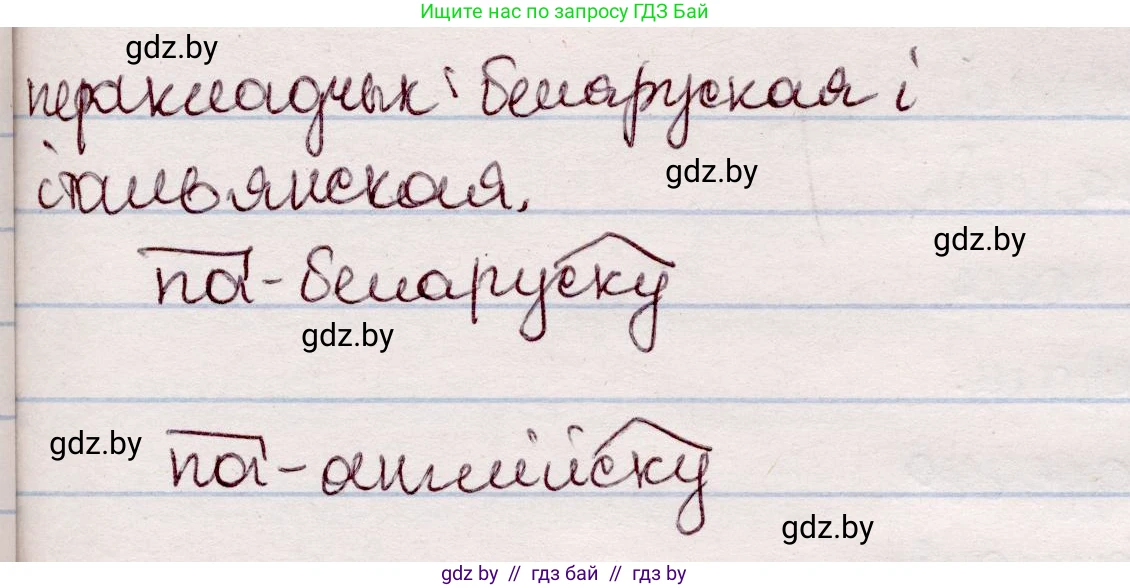 Ищите нас по запросу ГДЗ Бай
gdz.by
перакладчык: беларуская і
gdz.by
італьянская.
gdz.by
па-беларуску
gdz.by
gdz.by
па-англійску
gdz.by
gdz by // гдз бай // гдз by